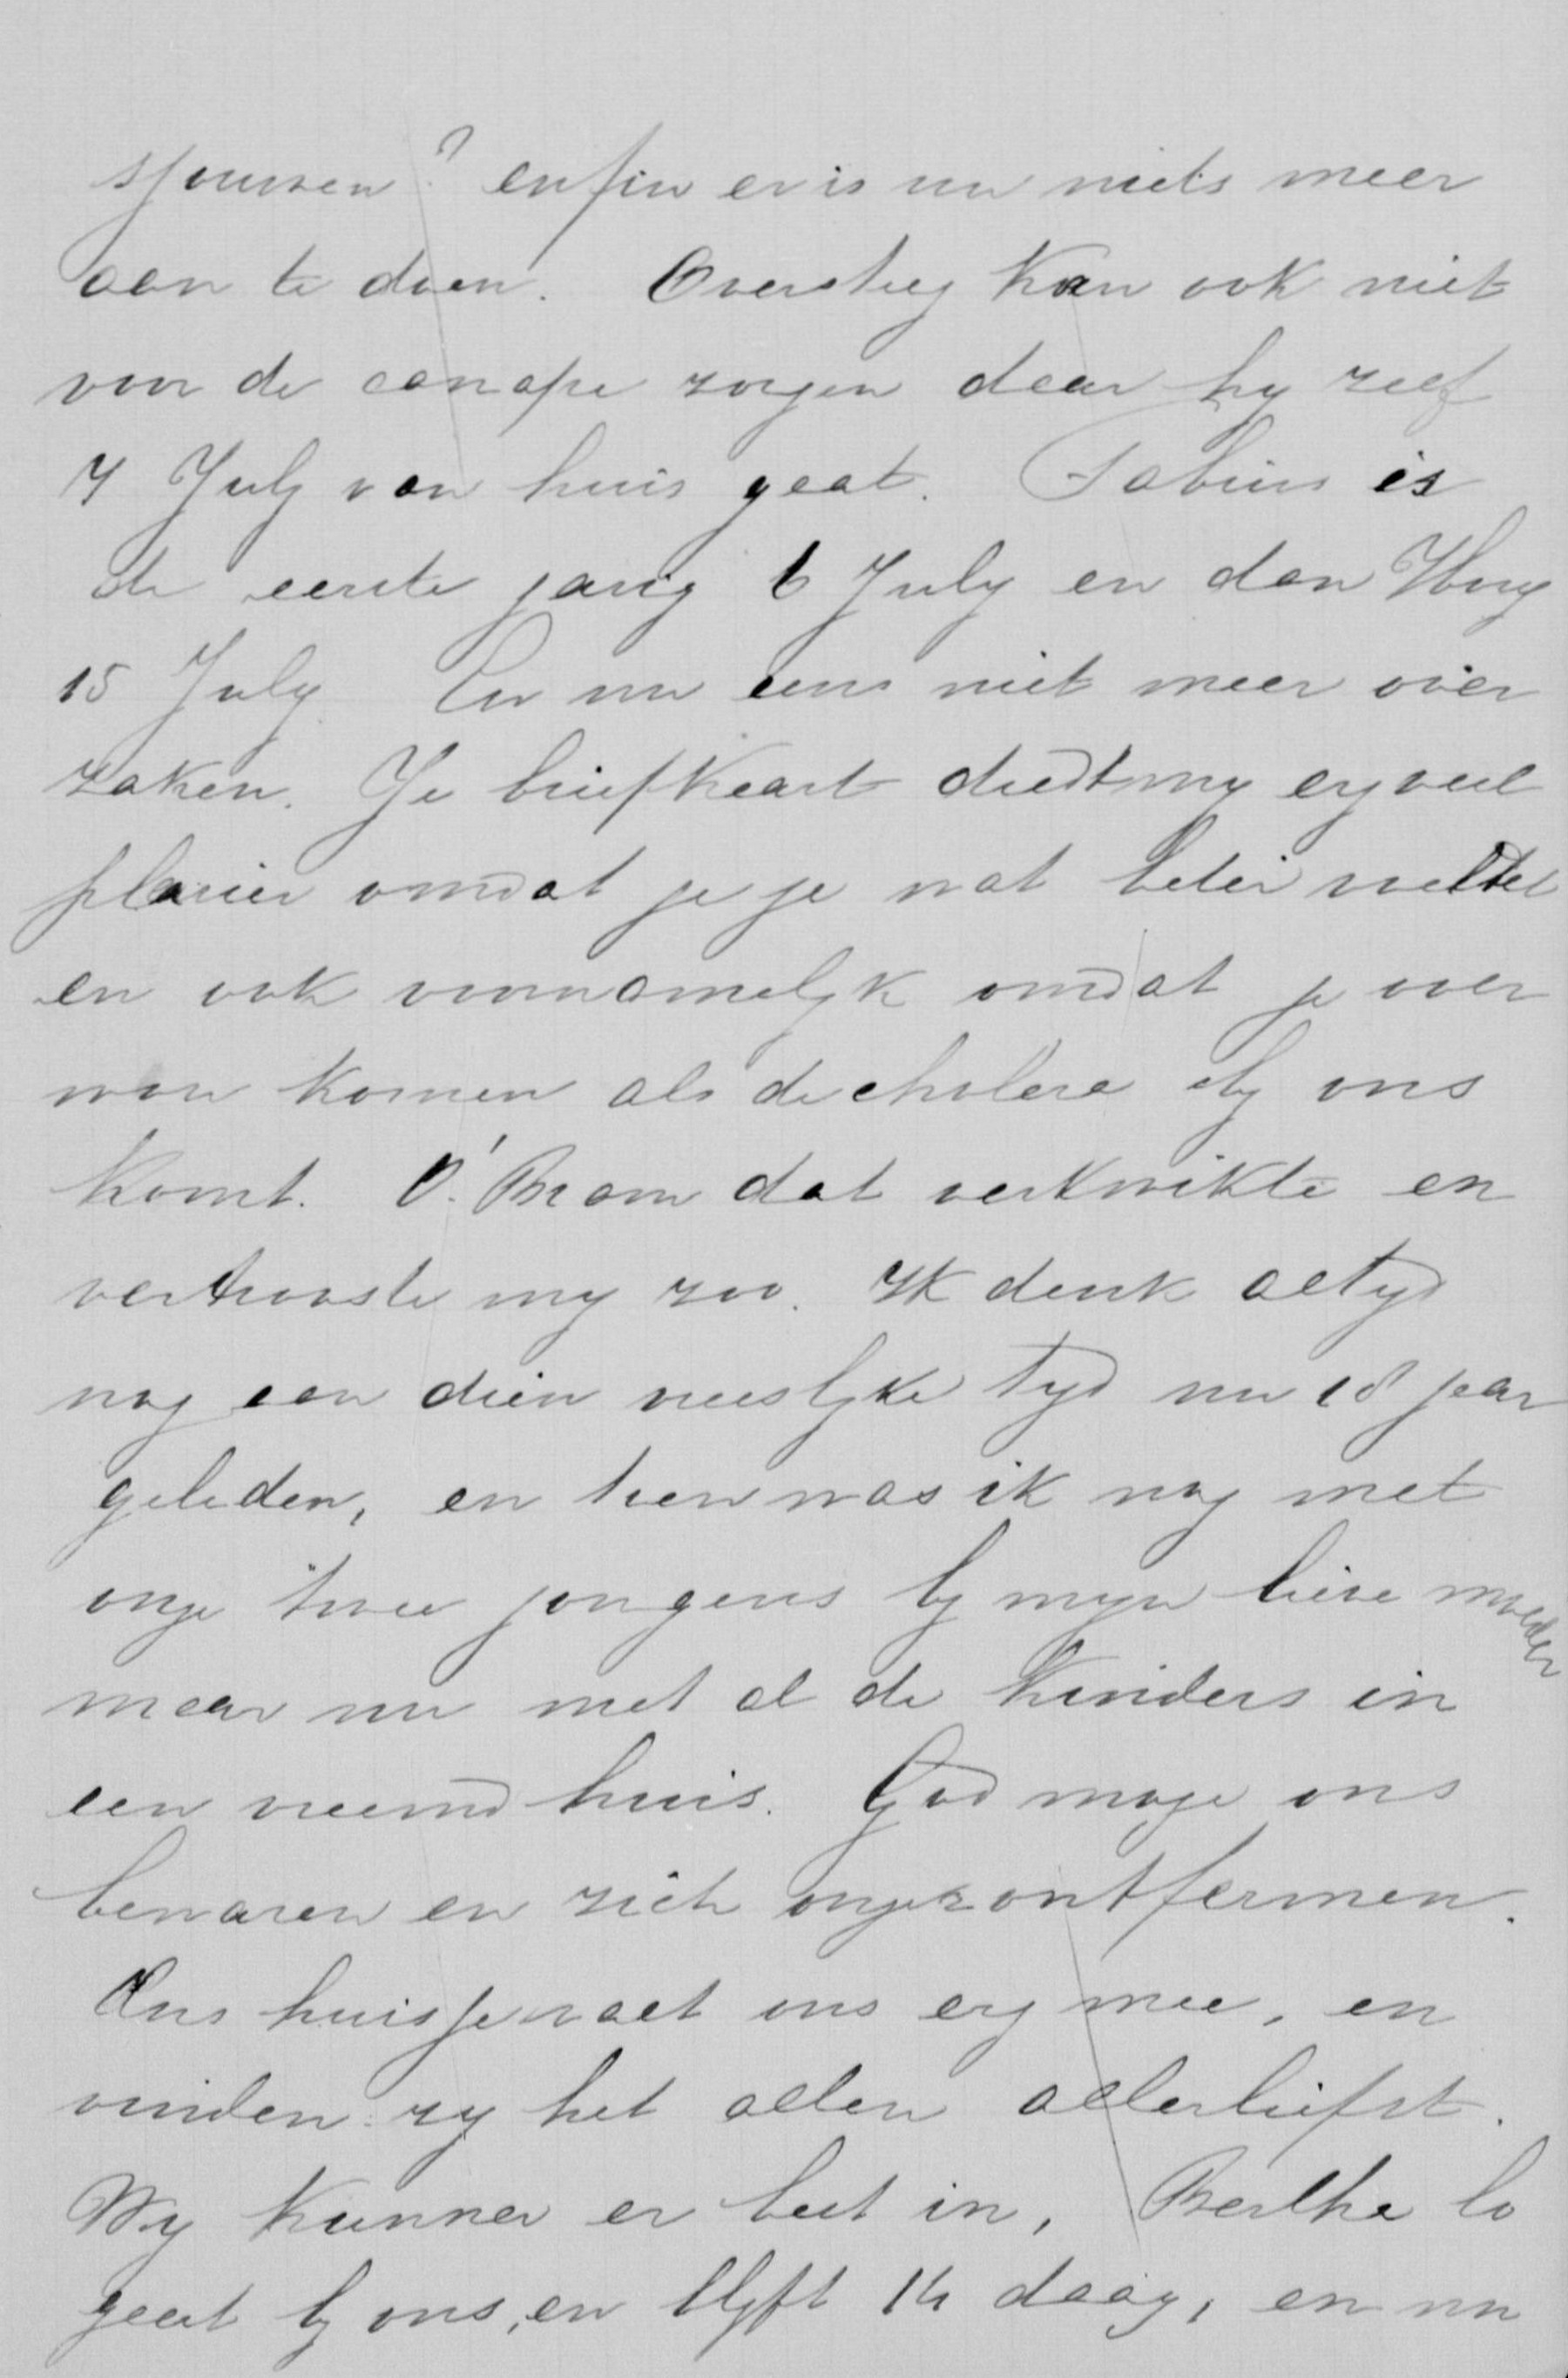 sjouwen? enfin er is nu niets meer
aan te doen. Oversteeg kan ook niet
voor de canape zorgen daar hy zelf
7 July van huis gaat. Fabius is
de eerste jarig 6 July en dan Hug
15 July. En nu eens niet meer over
zaken. Je briefkaart deedt my erg veel
plaisier omdat je je wat beter voeldet
en ook voornamelyk omdat je over
wou komen als de cholera by ons
komt. O! Bram dat verkwikte en
vertrooste my zoo. Ik denk altyd
nog aan dien vreeslyke tyd nu 18 jaar
geleden, en toen was ik nog met
onze twee jongens by myn lieve moeder
maar nu met al de kinders in
een vreemd huis. God moge ons
bewaren en zich onzer ontfermen.
Ons huisje valt ons erg mee, en
vinden zy het allen allerliefst.
Wy kunnen er best in, Berthe lo
geert by ons, en blyft 14 daag, en nu